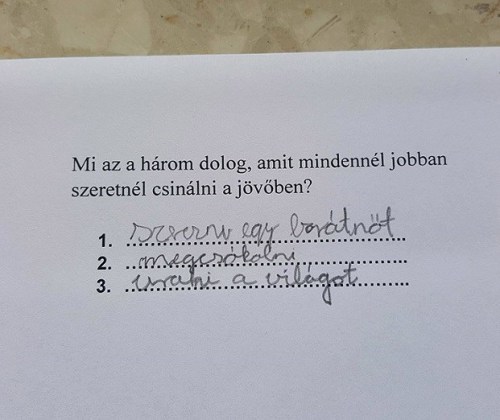 Mi az a három dolog, amit mindennél jobban
szeretnél csinálni a jövőben?
1. Szerezni egy barátnőt
2. megcsókolni
3. uralni a világot